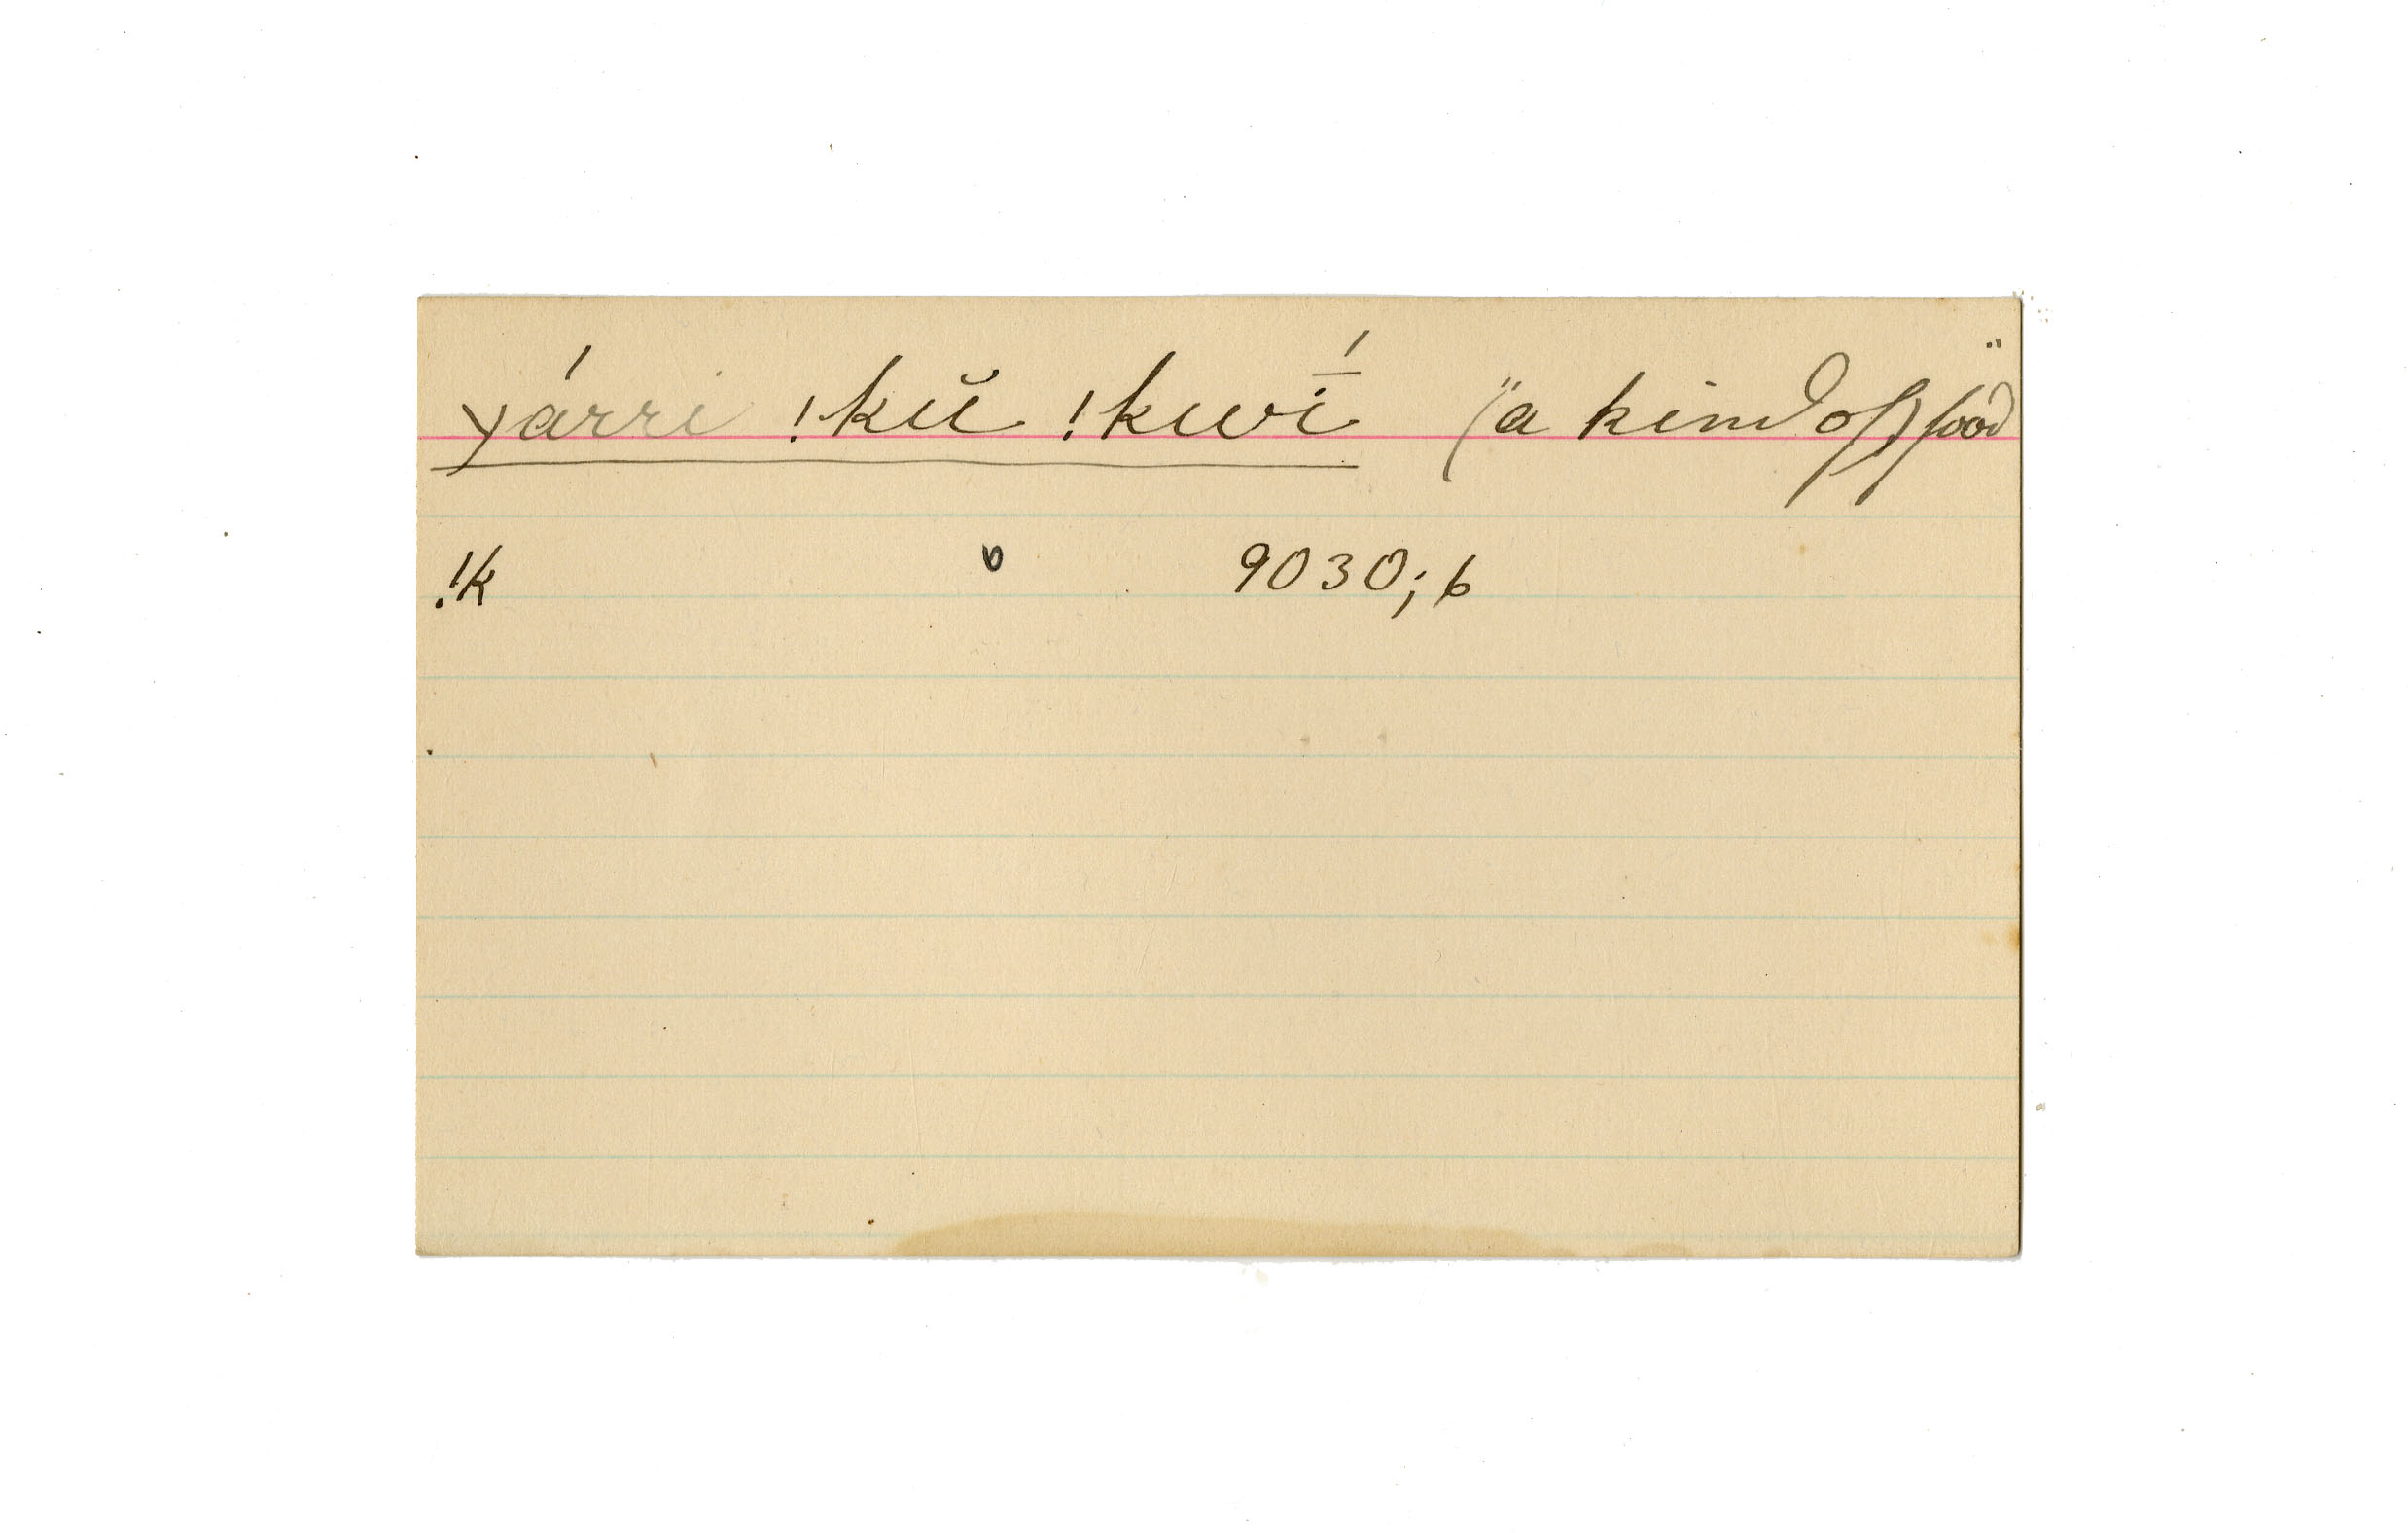 yárri !kŭ !kwī́ ("a kind of food")
!k 9030; 6